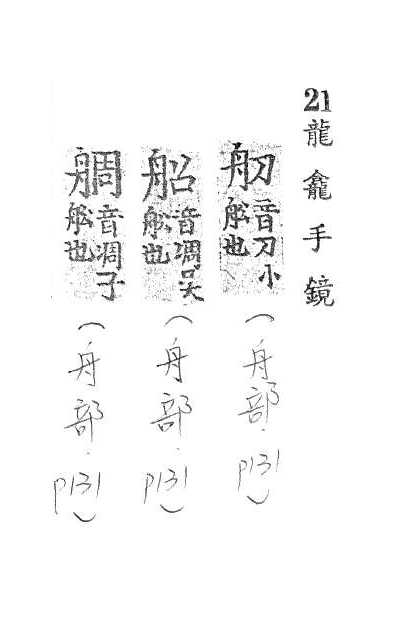 21龍龕手鏡
舠 音刀小舩也
(舟部.P131)
音凋吳舩也
(舟部.P131)
音凋子舩也
(舟部.P131)